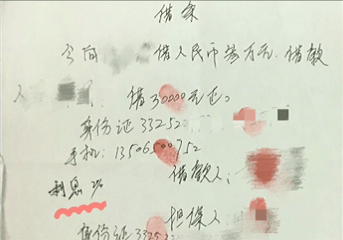 借条
今向 借人民币叁万元、借款
人 借30000元正。
身份证33252
手机：13506500752
借款人：
利息 2%
担保人
身份证33252